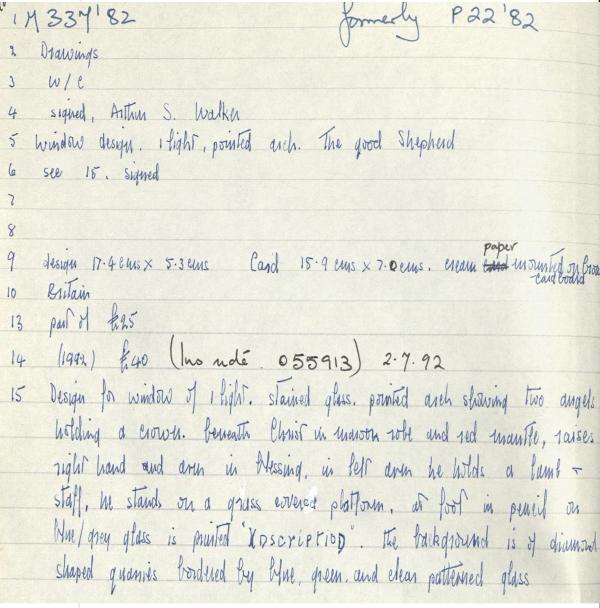 1 M 337'82 formerly P22'82
2 Drawings
3 W/C
4 signed, Arthur S. Walker
5 Window design. 1 light, pointed arch. The good Shepherd
6 see 15. signed
7
8
paper
9 design 17.4 cms x 5.3 cms Card 15.9 cms x 7.0 cms. cream mounted on
cardboard
10 Britain
13 part of £25
14 (1992) £40 (Ins 055913) 2.7.92
15 Design for window of 1 light. stained glass. pointed arch showing two angels
holding a crown. beneath Christ in maroon robe and red mantle, raises
right hand and arm in blessing, in left arm he holds a lamb +
staff, he stands on a grass covered platform. at foot in pencil on
blue/grey glass is printed "XDSCRIPTIOD". the background is of diamond
shaped quarries bordered by blue, green. and clear patterned glass